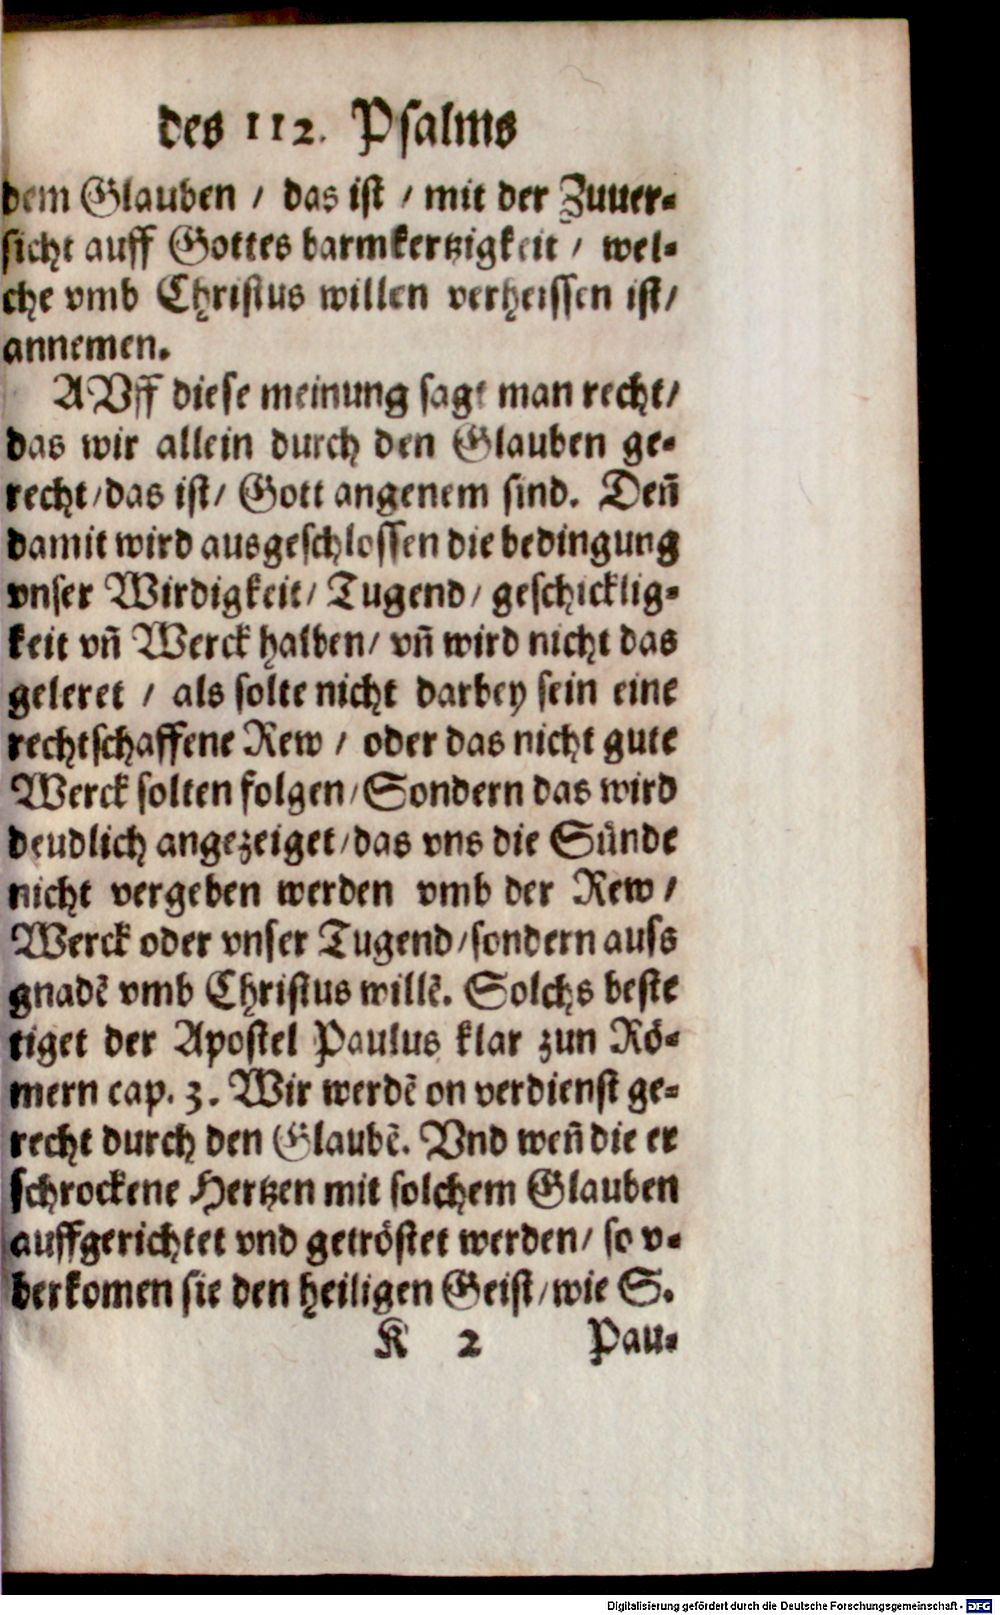 des 112. Psalms
dem Glauben / das ist / mit der Zuuer-
sicht auff Gottes barmkertzigkeit / wel-
che vmb Christus willen verheissen ist/
annemen.
AVff diese meinung sagt man recht/
das wir allein durch den Glauben ge-
recht/das ist/ Gott angenem sind. Deñ
damit wird ausgeschlossen die bedingung
vnser Wirdigkeit/ Tugend/ geschicklig-
keit vñ Werck halben/ vñ wird nicht das
geleret / als solte nicht darbey sein eine
rechtschaffene Rew / oder das nicht gute
Werck solten folgen/Sondern das wird
deudlich angezeiget/das vns die Sünde
nicht vergeben werden vmb der Rew /
Werck oder vnser Tugend/sondern auss
gnadẽ vmb Christus willẽ. Solchs beste
tiget der Apostel Paulus klar zun Rö-
mern cap. 3. Wir werdẽ on verdienst ge-
recht durch den Glaubẽ. Vnd weñ die er
schrockene Hertzen mit solchem Glauben
auffgerichtet vnd getröstet werden/ so v-
berkomen sie den heiligen Geist/wie S.
K 2 Pau-
Digitalisierung gefördert durch die Deutsche Forschungsgemeinschaft - DFG